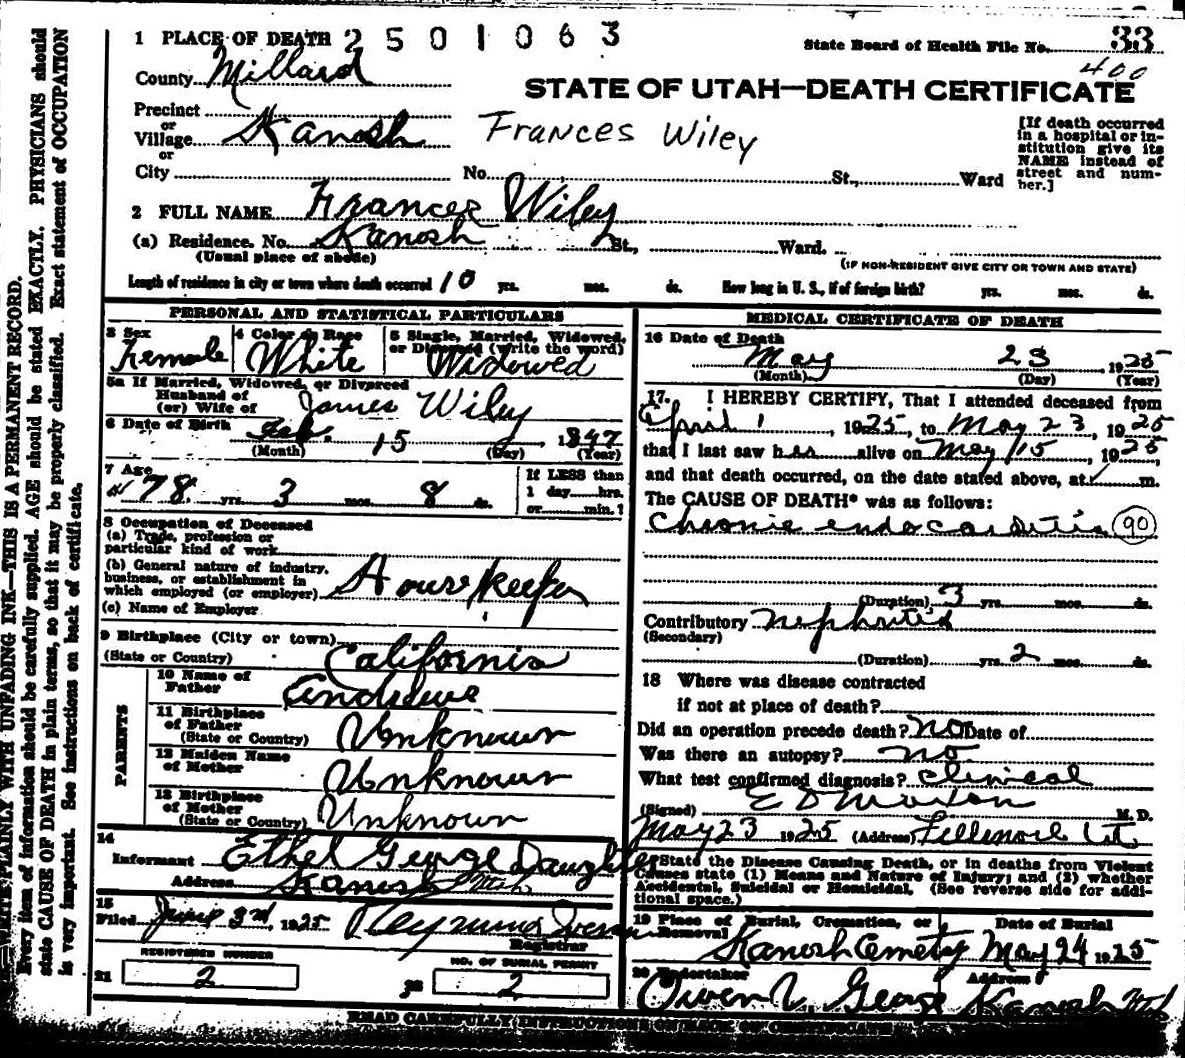 1 PLACE OF DEATH 2501063
State Board of Health File No. 33
400
County Millard
STATE OF UTAH—DEATH CERTIFICATE
Precinct
or
Village Kanosh
Frances Wiley
or
City No. St., Ward
[If death occurred
in a hospital or in-
stitution give its
NAME instead of
street and num-
ber.]
2 FULL NAME Frances Wiley
(a) Residence. No. Kanosh St., Ward.
(Usual place of abode)
(IF NON-RESIDENT GIVE CITY OR TOWN AND STATE)
Length of residence in city or town where death occurred 10 yrs. mos. ds. How long in U. S., if of foreign birth? yrs. mos. ds.
PERSONAL AND STATISTICAL PARTICULARS
3 Sex
Female
4 Color or Race
White
5 Single, Married, Widowed,
or Divorced (write the word)
Widowed
5a If Married, Widowed, or Divorced
Husband of
(or) Wife of James Wiley
6 Date of Birth Feb. 15, 1847
(Month) (Day) (Year)
7 Age
78 yrs. 3 mos. 8 ds.
If LESS than
1 day hrs.
or min.?
8 Occupation of Deceased
(a) Trade, profession or
particular kind of work
(b) General nature of industry,
business, or establishment in
which employed (or employer) Housekeeper
(c) Name of Employer
9 Birthplace (City or town)
(State or Country) California
PARENTS
10 Name of
Father Andrews
11 Birthplace
of Father
(State or Country) Unknown
12 Maiden Name
of Mother Unknown
13 Birthplace
of Mother
(State or Country) Unknown
14
Informant Ethel George Daughter
Address Kanosh Utah
15
Filed June 3rd, 1925
Registrar
21 REGISTERED NUMBER
2
22 NO. OF BURIAL PERMIT
2
MEDICAL CERTIFICATE OF DEATH
16 Date of Death
May 23, 1925
(Month) (Day) (Year)
17. I HEREBY CERTIFY, That I attended deceased from
April 1, 1925, to May 23, 1925
that I last saw her alive on May 15, 1925,
and that death occurred, on the date stated above, at m.
The CAUSE OF DEATH* was as follows:
Chronic endocarditis (90)
(Duration) 3 yrs. mos. ds.
Contributory Nephritis
(Secondary)
(Duration) yrs. 2 mos. ds.
18 Where was disease contracted
if not at place of death?
Did an operation precede death? No Date of
Was there an autopsy? no
What test confirmed diagnosis? Clinical
(Signed) M. D.
May 23 1925 (Address) Fillmore Ut
*State the Disease Causing Death, or in deaths from Violent
Causes state (1) Means and Nature of Injury; and (2) whether
Accidental, Suicidal or Homicidal. (See reverse side for addi-
tional space.)
19 Place of Burial, Cremation, or
Removal
Date of Burial
Kanosh Cemetry May 24 1925
20 Undertaker Address
Owen L George Kanosh Utah
READ CAREFULLY INSTRUCTIONS ON BACK OF CERTIFICATE
WRITE PLAINLY WITH UNFADING INK—THIS IS A PERMANENT RECORD.
Every item of information should be carefully supplied. AGE should be stated EXACTLY. PHYSICIANS should
state CAUSE OF DEATH in plain terms, so that it may be properly classified. Exact statement of OCCUPATION
is very important. See instructions on back of certificate.